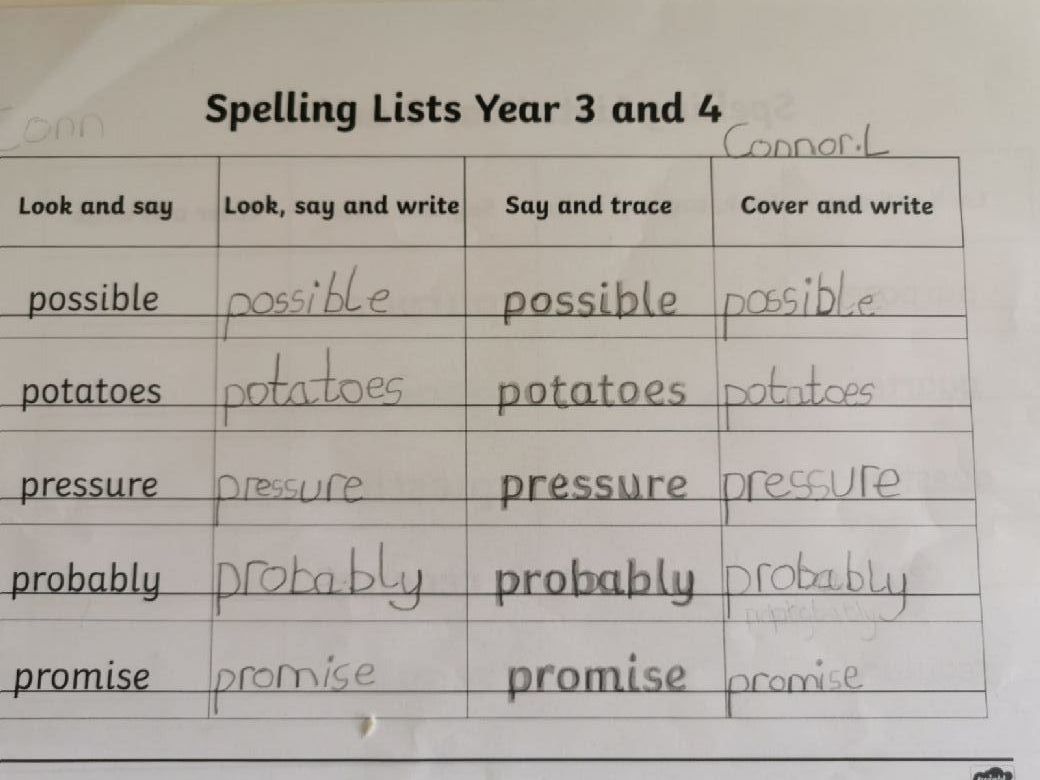 Spelling Lists Year 3 and 4
Conn
Connor.L
Look and say Look, say and write Say and trace Cover and write
possible possible possible possible
potatoes potatoes potatoes potatoes
pressure pressure pressure pressure
probably probably probably probably
promise promise promise promise